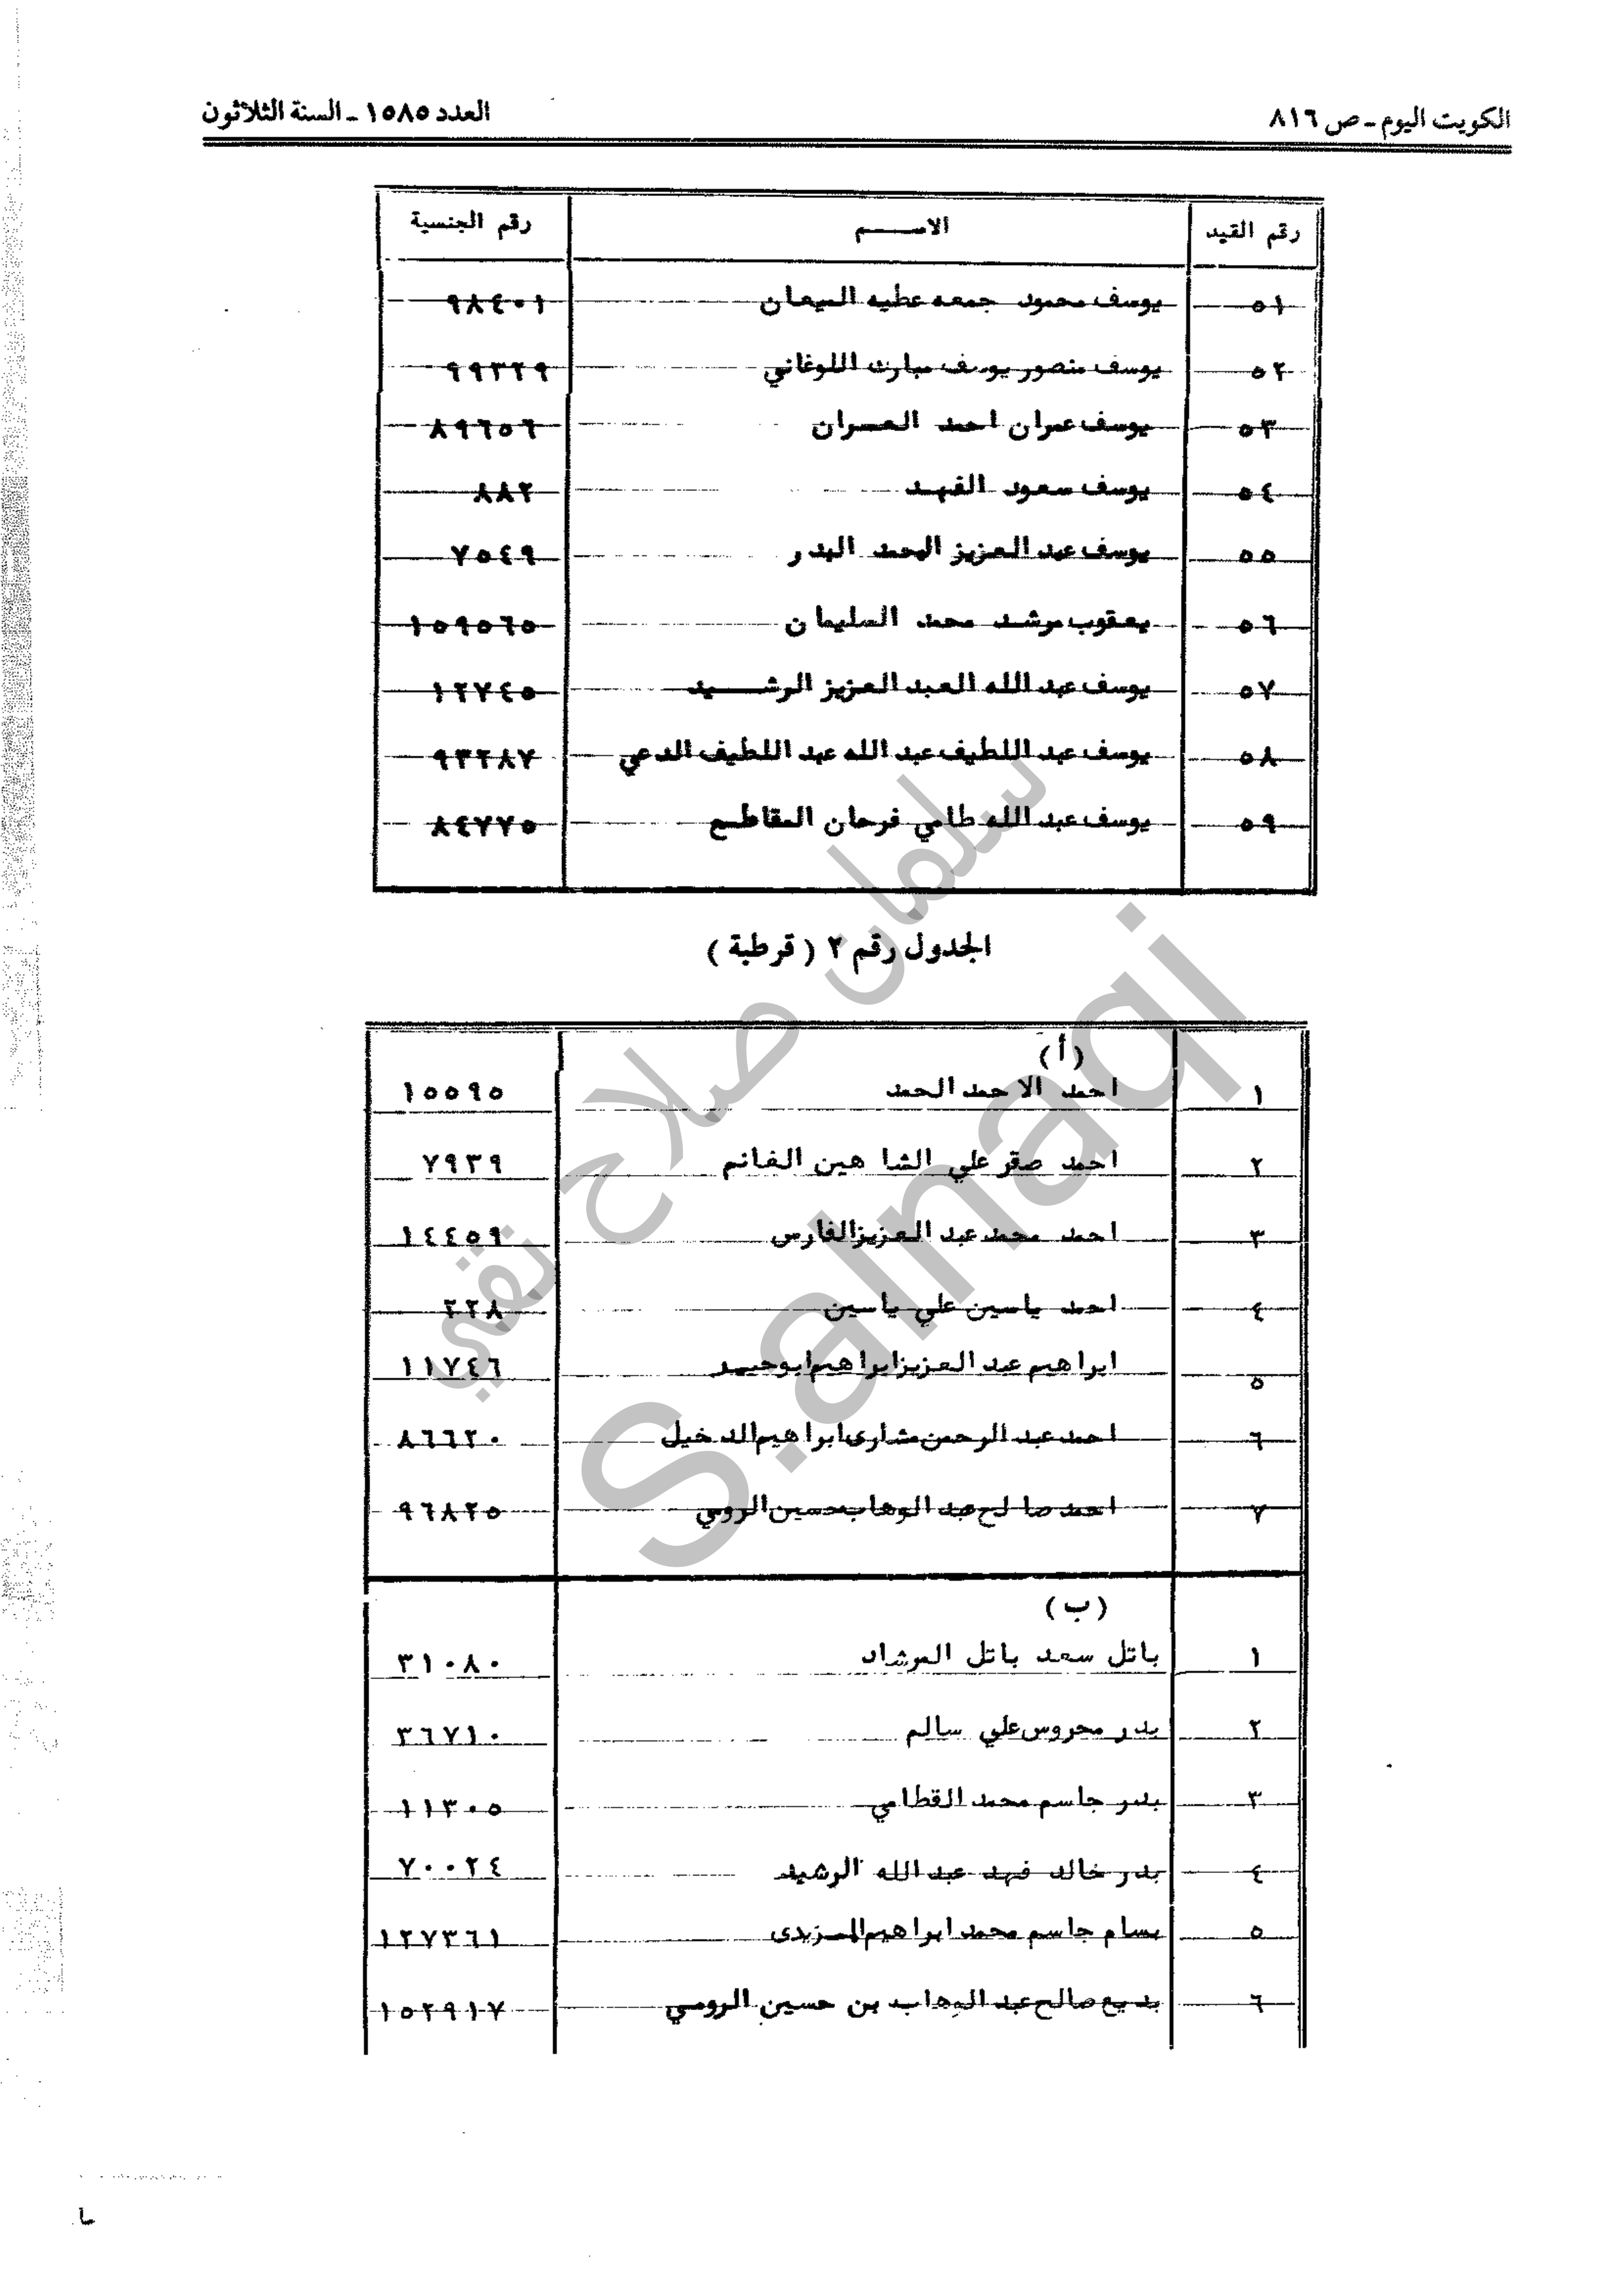 الكويت اليوم ـ ص ٨١٦
العدد ١٥٨٥ ـ السنة الثلاثون
رقم القيد الاســـــم رقم الجنسية
٥١ يوسف محمود جمعه عطيه الميعان ٩٨٤٠١
٥٢ يوسف منصور يوسف مبارك اللوغاني ٩٩٣٢٩
٥٣ يوسف عمران احمد العمران ٨٩٦٥٦
٥٤ يوسف سعود الفهد ٨٨٢
٥٥ يوسف عبد العزيز المحمد البدر ٧٥٤٩
٥٦ يعقوب مرشد محمد السليمان ١٥٩٥٦٥
٥٧ يوسف عبد الله العبد العزيز الرشـــيد ١٢٧٤٥
٥٨ يوسف عبد اللطيف عبد الله عبد اللطيف الدعي ٩٣٢٨٧
٥٩ يوسف عبد الله طامي فرحان المقاطع ٨٤٧٧٥
الجدول رقم ٢ ( قرطبة )
(أ)
١ احمد الاحمد الحمد ١٥٥٩٥
٢ احمد صقر علي الشاهين الغانم ٧٩٣٩
٣ احمد محمد عبد العزيز الفارس ١٤٤٥٩
٤ احمد ياسين علي ياسين ٢٢٨
٥ ابراهيم عبد العزيز ابراهيم ابوحيمد ١١٧٤٦
٦ احمد عبد الرحمن مشارى ابراهيم الدخيل ٨٦٦٢٠
٧ احمد صالح عبد الوهاب حسين الرومي ٩٦٨٢٥
(ب)
١ باتل سعد باتل المرشاد ٣١٠٨٠
٢ بدر محروس علي سالم ٣٦٧١٠
٣ بدر جاسم محمد القطامي ١١٣٠٥
٤ بدر خالد فهد عبد الله الرشيد ٧٠٠٢٤
٥ بسام جاسم محمد ابراهيم المزيدى ١٢٧٣٦١
٦ بديع صالح عبد الوهاب بن حسين الرومي ١٥٢٩١٧
سلمان صلاح تقي
S.alnaqi